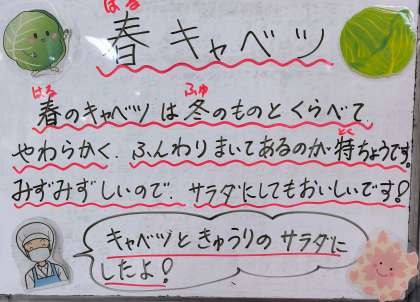 はる
春キャベツ
はる ふゆ
春のキャベツは冬のものとくらべて、
とく
やわらかく、ふんわりまいてあるのが特ちょうです。
みずみずしいので、サラダにしてもおいしいです!
キャベツときゅうりのサラダに
したよ!